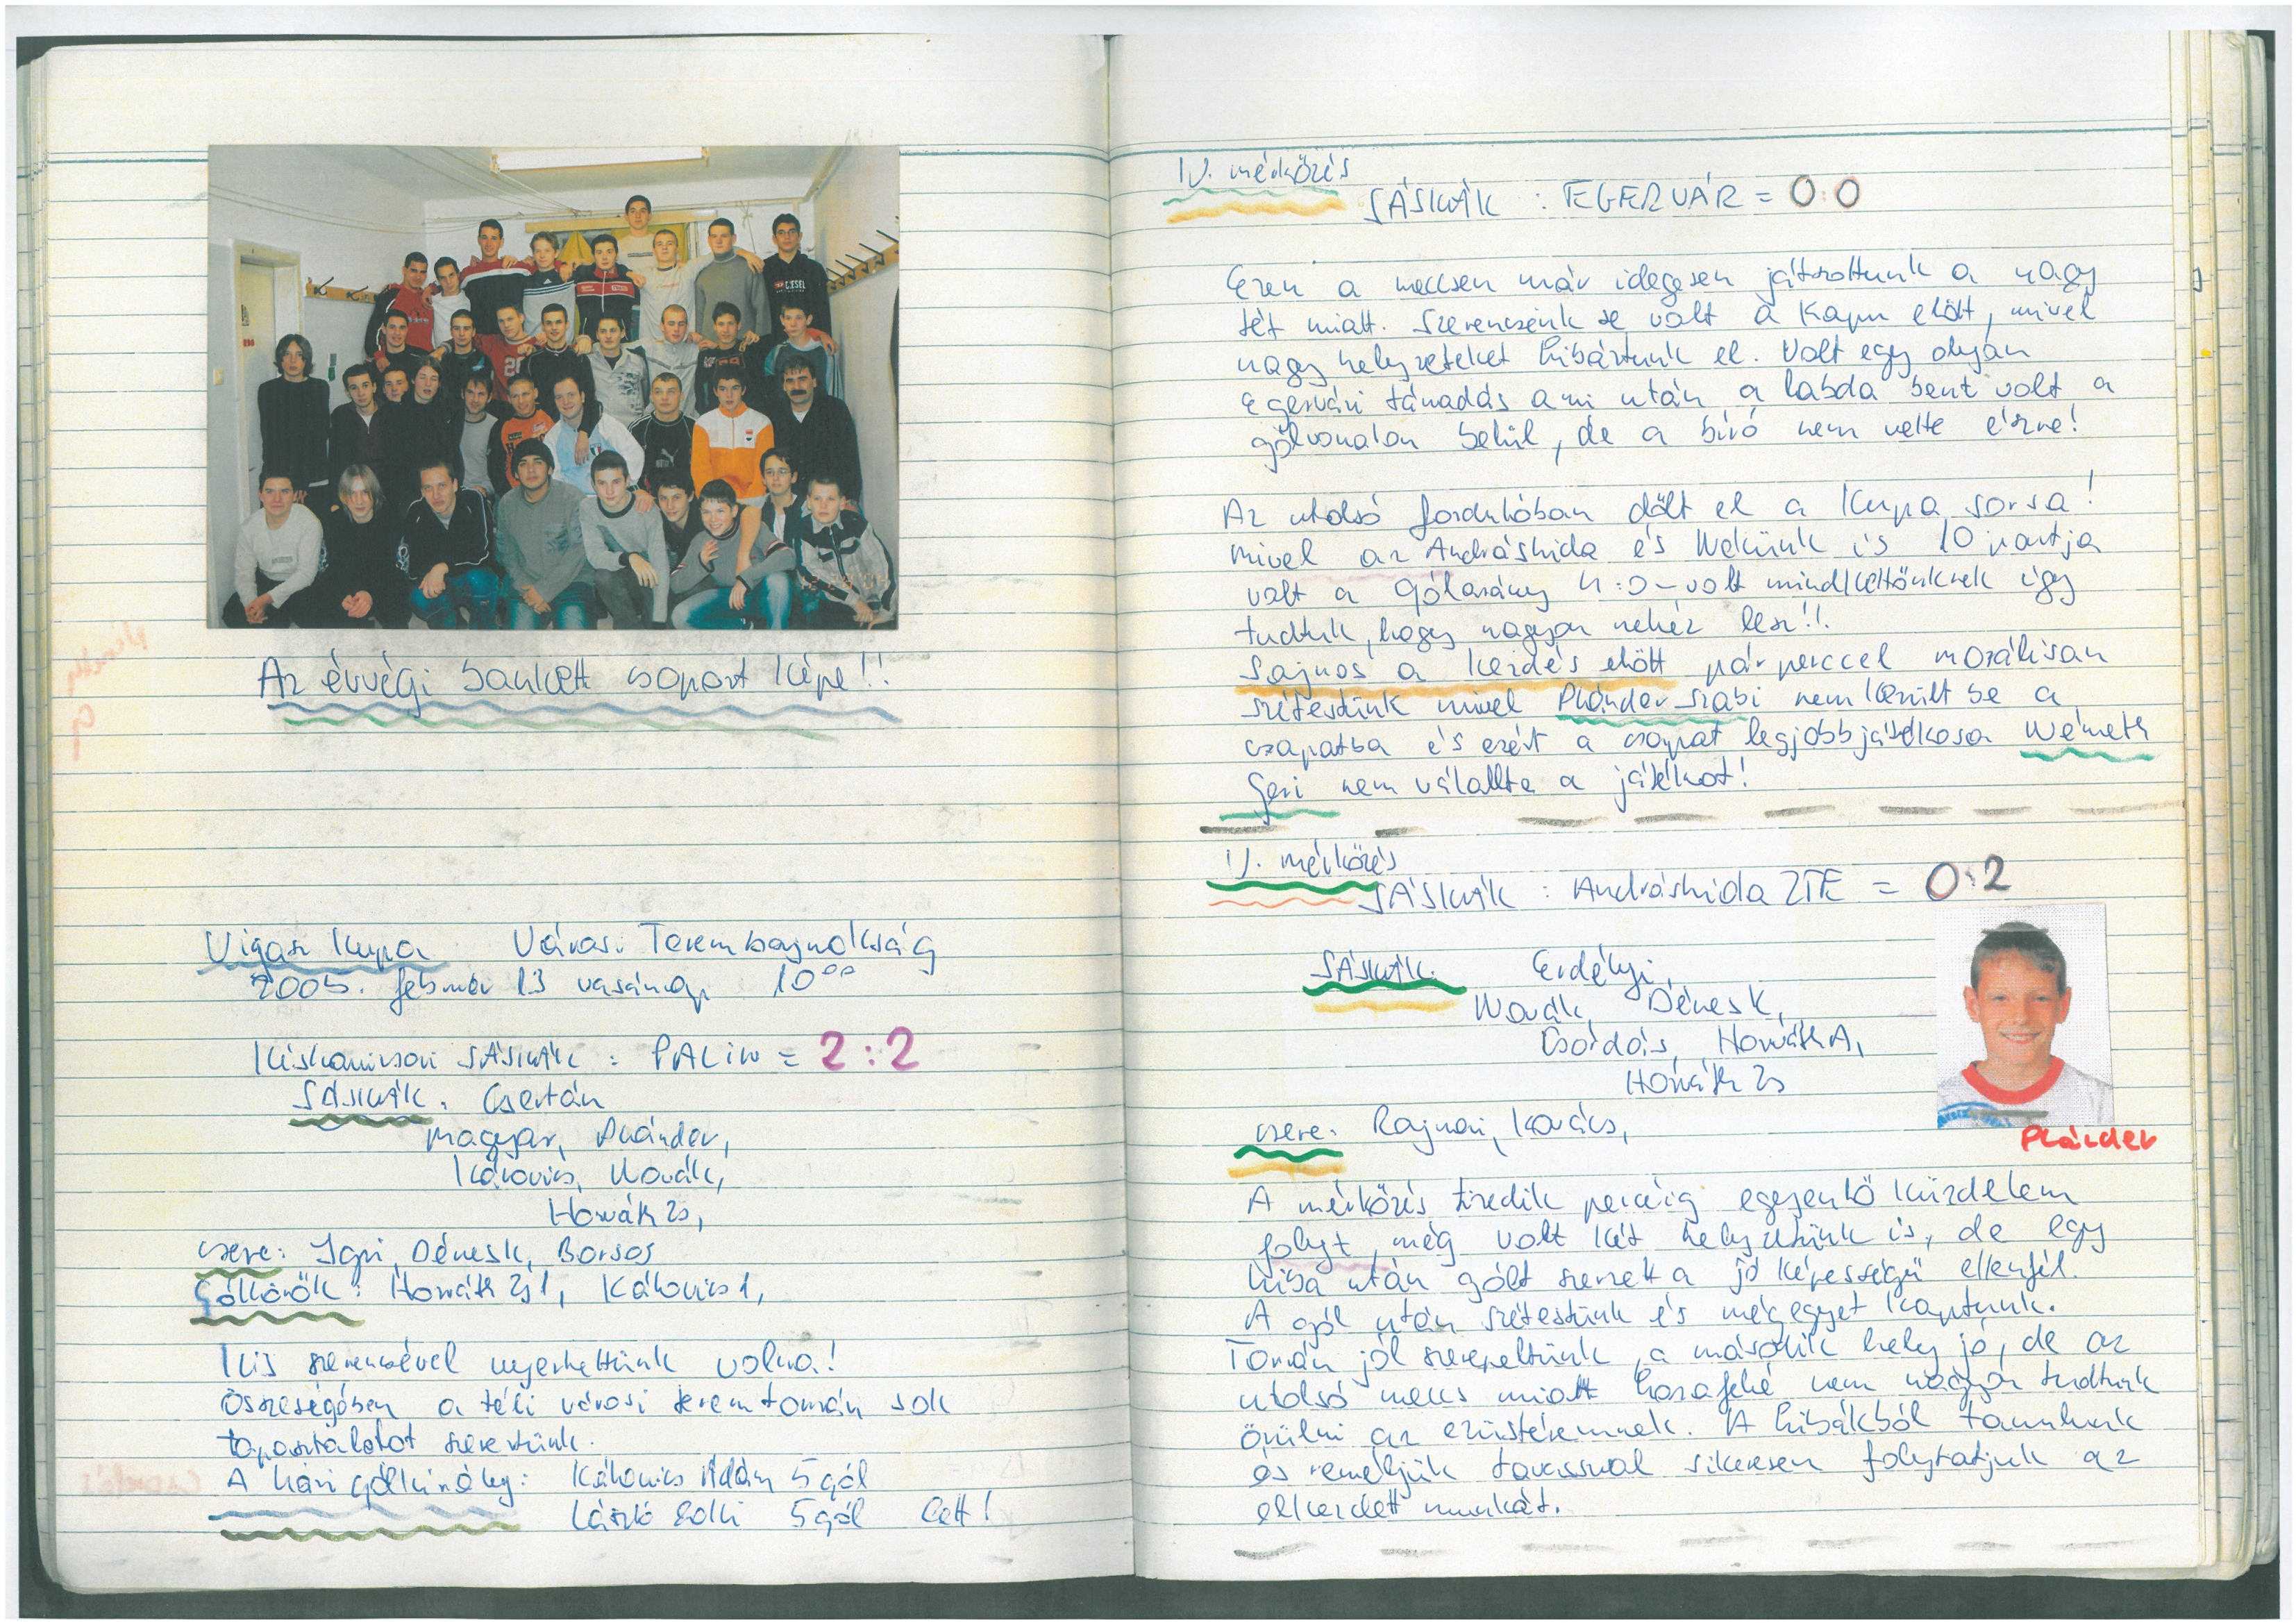 Az évvégi bankett csoport képe!!
Vigasz Kupa Városi Terembajnokság
2005. február 13 vasárnap 10⁰⁰
Kiskanizsai SÁSKÁK : PALIN = 2:2
SÁSKÁK: Csertán
Magyar, Plánder,
Kálovics, Novák,
Horváth Zs,
csere: Igri, Dénes K, Borsos
Góllövők: Horváth Zs 1, Kálovics 1,
Kis szerencsével nyerhettünk volna!
Összeségében a téli városi teremtornán sok
tapasztalatot szereztünk.
A házi gólkirály: Kálovics Ádám 5 gól
László Zolti 5 gól lett!
IV. mérkőzés
SÁSKÁK : EGERVÁR = 0:0
Ezen a meccsen már idegesen játszottunk a nagy
tét miatt. Szerencsénk se volt a kapu előtt, mivel
nagy helyzeteket hibáztunk el. Volt egy olyan
egervári támadás ami után a labda bent volt a
gólvonalon belül, de a bíró nem vette észre!
Az utolsó fordulóban dőlt el a kupa sorsa!
Mivel az Andráshida és Nekünk is 10 pontja
volt a gólarány 4:0-volt mindkettőnknek így
tudtuk, hogy nagyon nehéz lesz!!
Sajnos a kezdés előtt pár perccel morálisan
szétestünk mivel Plánder Szabi nem került be a
csapatba és ezért a csapat legjobb játékosa Németh
Geri nem válallta a játékot!
V. mérkőzés
SÁSKÁK : Andráshida ZTE = 0:2
SÁSKÁK: Erdélyi,
Novák, Dénes K,
Csordás, Horváth A,
Horváth Zs
csere: Rajnai, Kovács,
Plánder
A mérkőzés tizedik percéig egyenlő küzdelem
folyt, még volt két helyzetünk is, de egy
hiba után gólt szerzett a jó képességű ellenfél.
A gól után szétestünk és még egyet kaptunk.
Tornán jól szerepeltünk, a második hely jó, de az
utolsó meccs miatt hazafelé nem nagyon tudtunk
örülni az ezüstéremnek. A hibákból tanulunk
és reméljük tavasszal sikeresen folytatjuk az
elkezdett munkát.